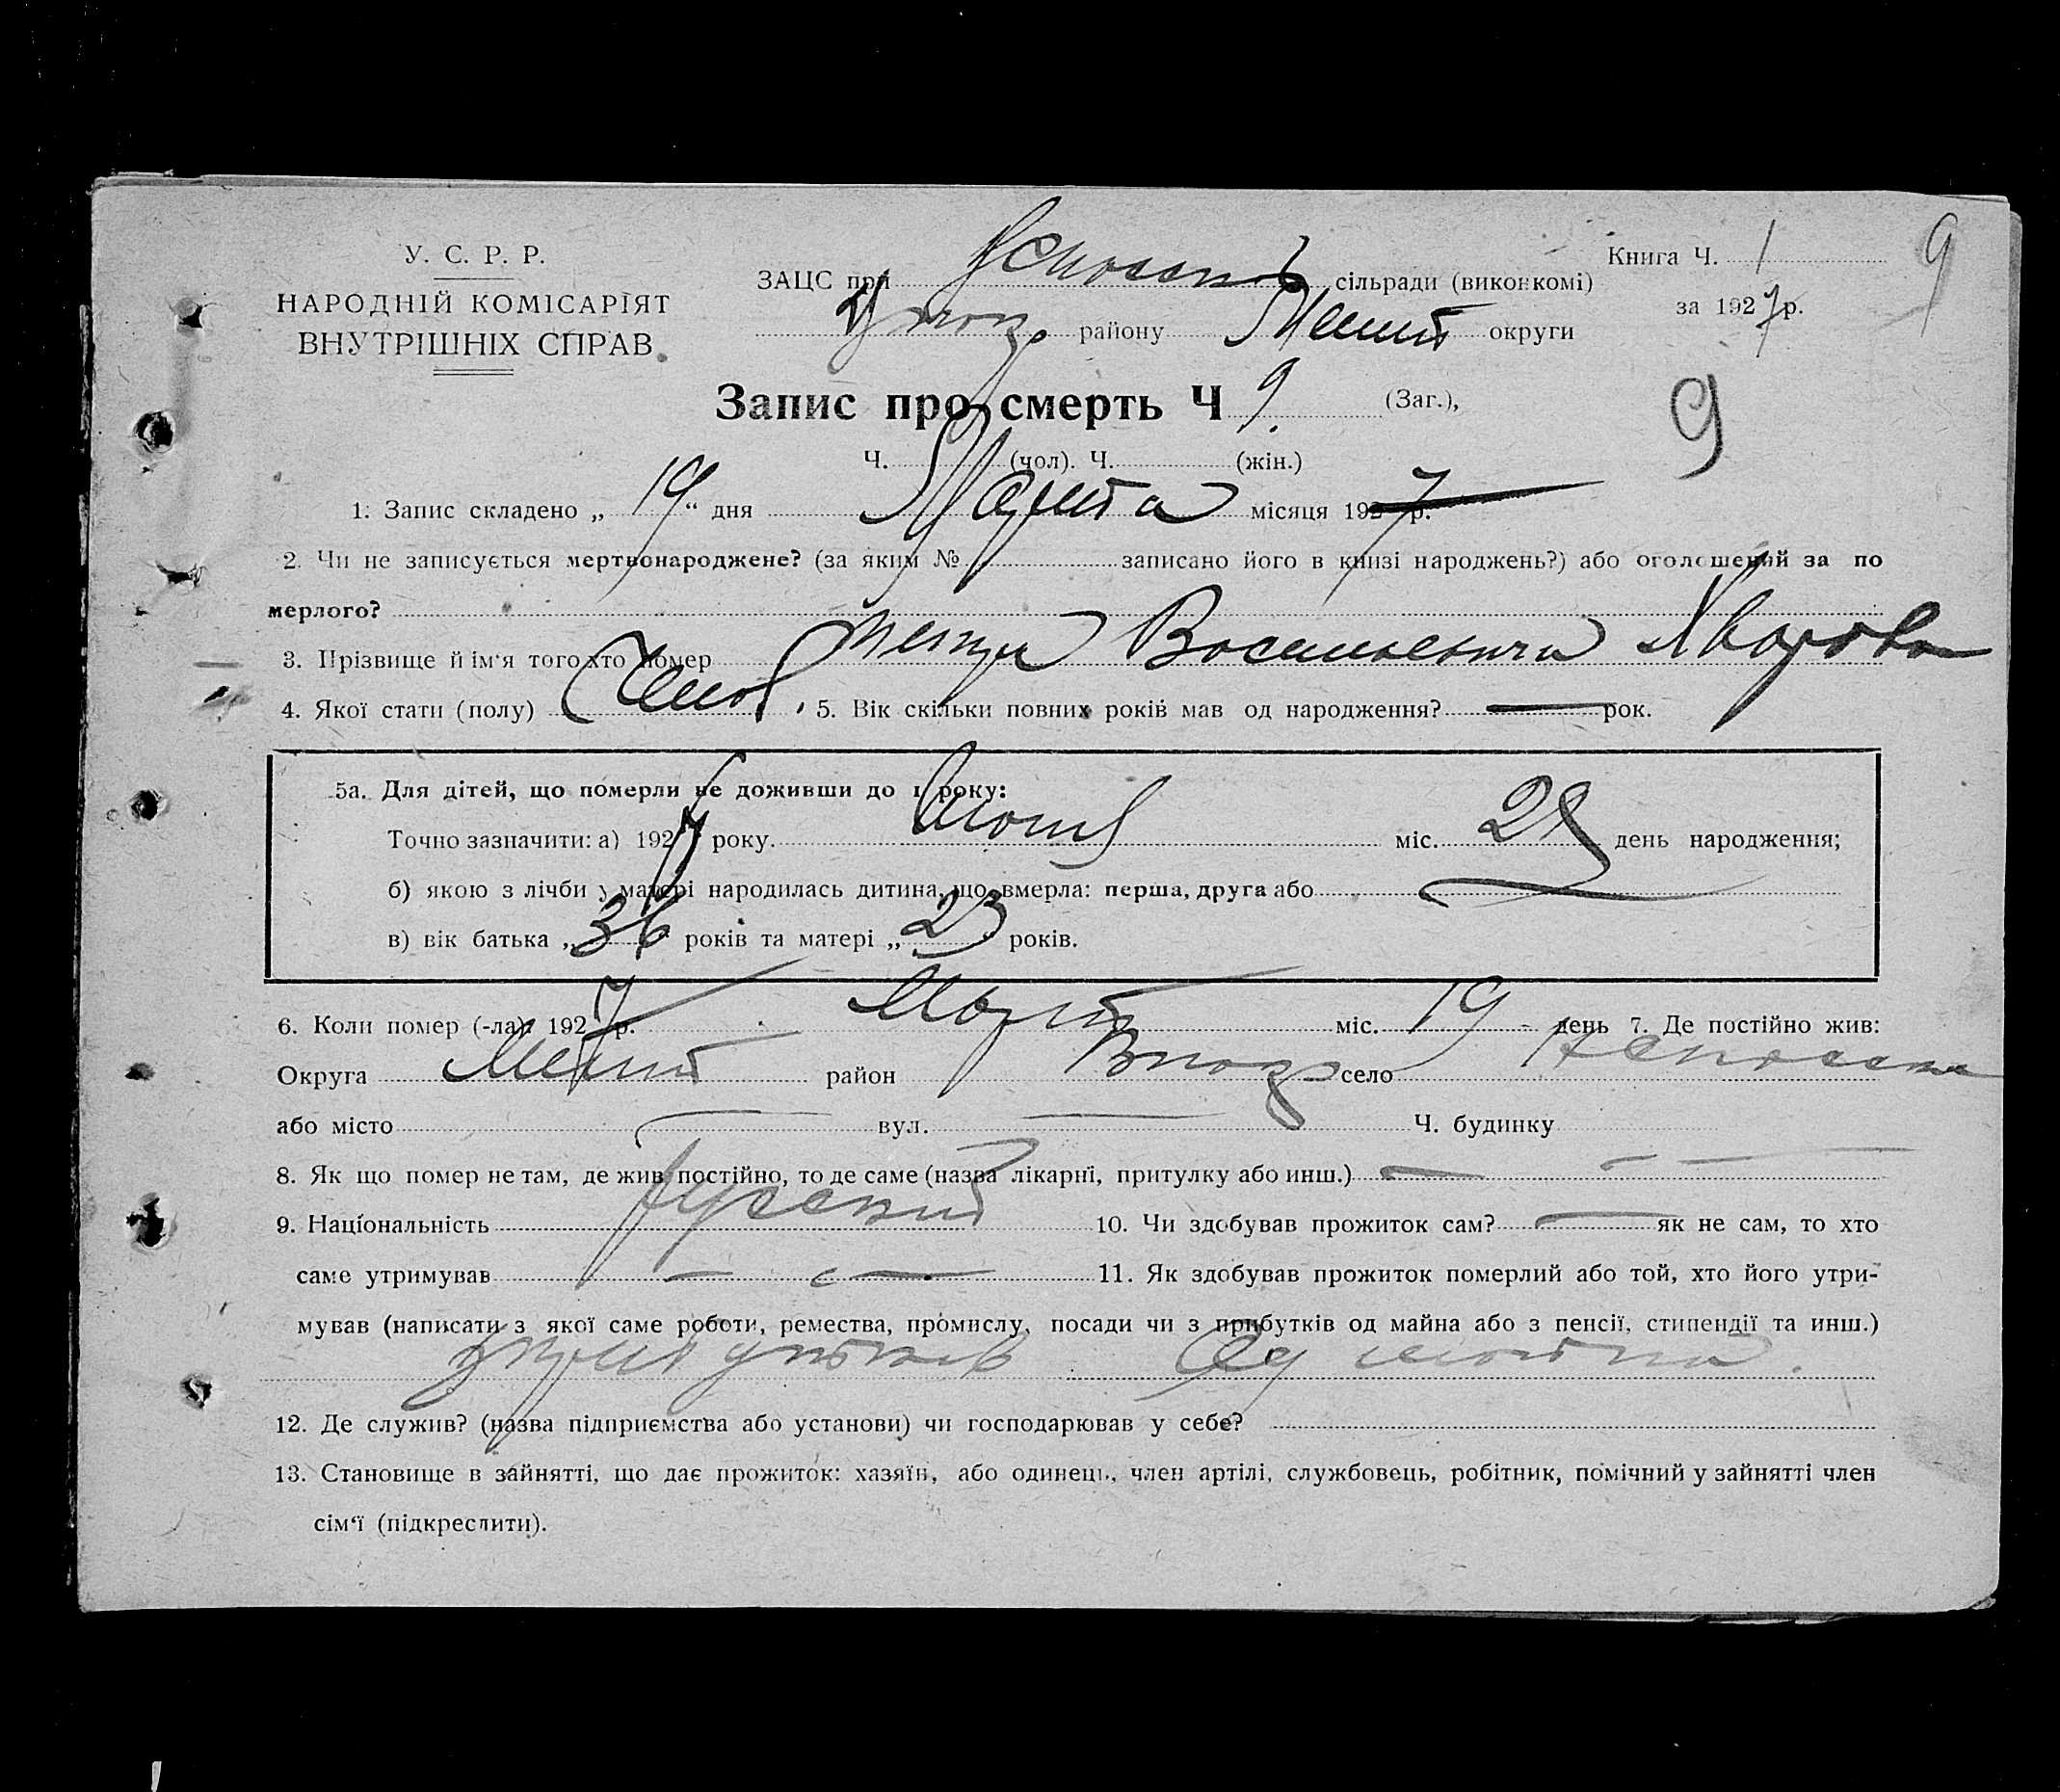 У. С. Р. Р.
НАРОДНІЙ КОМІСАРІЯТ
ВНУТРІШНІХ СПРАВ
ЗАЦС при сільради (виконкомі)
району округи
Книга Ч. 1
за 1927 р.
9
Запис про смерть Ч 9. (Заг.),
9
Ч. (чол). Ч. (жін.)
1. Запис складено „ 19 “ дня Марта місяця 1927 р.
2. Чи не записується мертвонароджене? (за яким № записано його в книзі народжень?) або оголошений за по
мерлого?
3. Прізвище й ім'я того хто помер Васильевич
4. Якої стати (полу) Чолов. 5. Вік скільки повних років мав од народження? — рок.
5а. Для дітей, що померли не доживши до 1 року:
Точно зазначити: а) 1927 року. міс. день народження;
б) якою з лічби у матері народилась дитина, що вмерла: перша, друга або
в) вік батька „ 36 “ років та матері „ 23 “ років.
6. Коли помер (-ла): 1927 р. Март міс. 19 день 7. Де постійно жив:
Округа Мелит район село
або місто — вул. — Ч. будинку
8. Як що помер не там, де жив постійно, то де саме (назва лікарні, притулку або инш.) —
9. Національність Русский 10. Чи здобував прожиток сам? — як не сам, то хто
саме утримував 11. Як здобував прожиток померлий або той, хто його утри-
мував (написати з якої саме роботи, ремества, промислу, посади чи з прибутків од майна або з пенсії, стипендії та инш.)
12. Де служив? (назва підприємства або установи) чи господарював у себе?
13. Становище в зайнятті, що дає прожиток: хазяїн, або одинець, член артілі, службовець, робітник, помічний у зайнятті член
сім'ї (підкреслити).